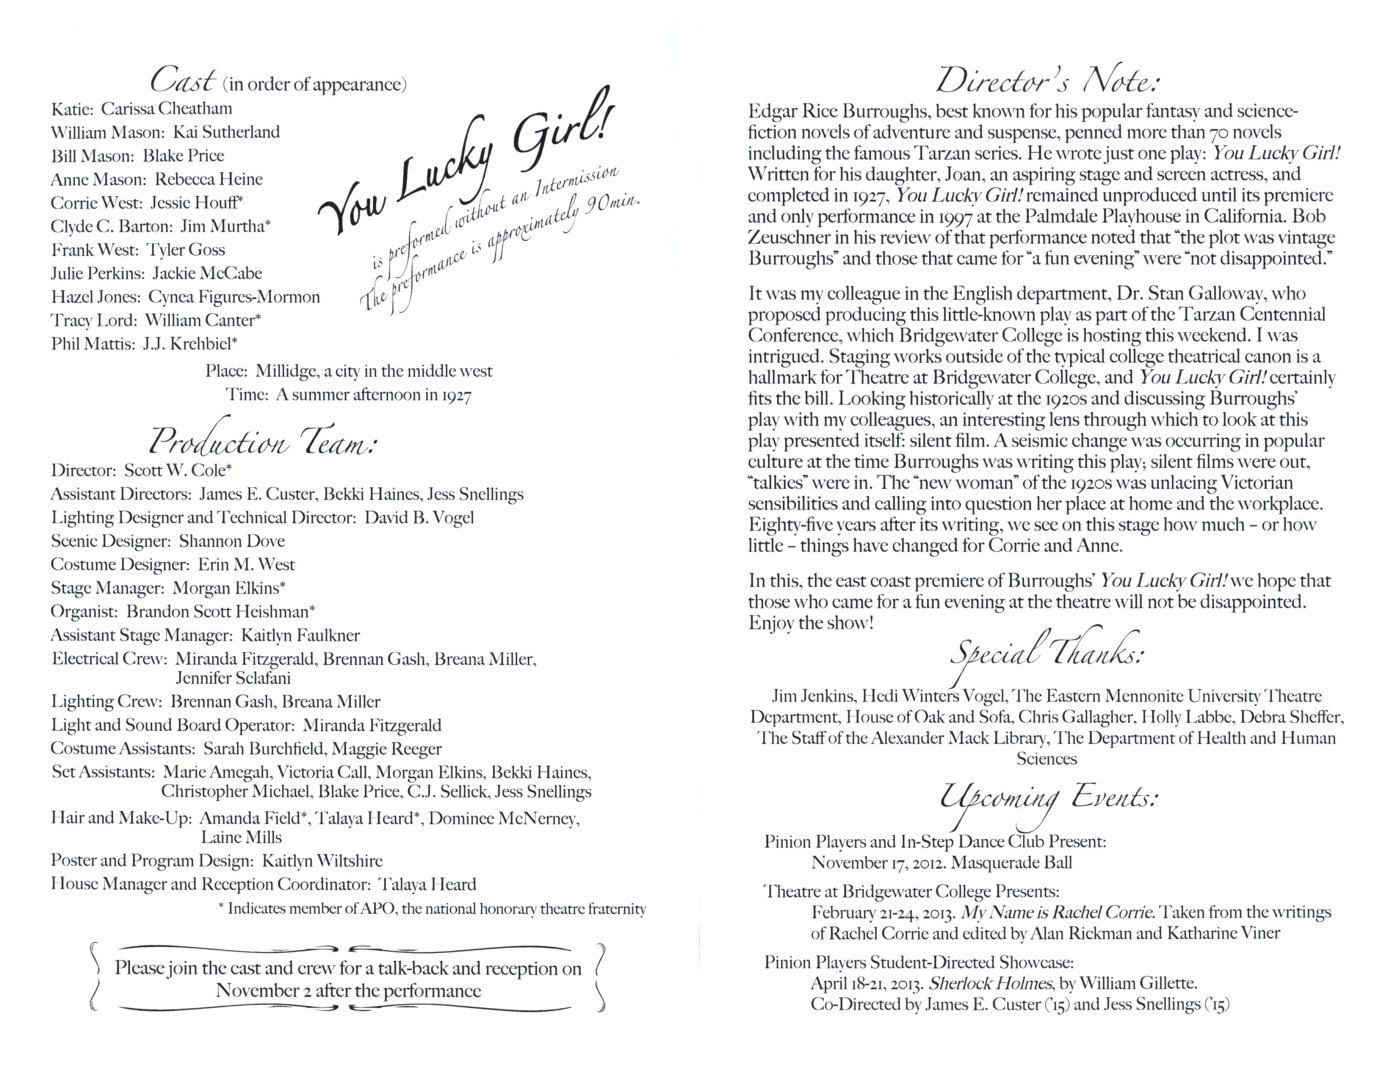 Cast (in order of appearance)
Katie: Carissa Cheatham
William Mason: Kai Sutherland
Bill Mason: Blake Price
Anne Mason: Rebecca Heine
Corrie West: Jessie Houff*
Clyde C. Barton: Jim Murtha*
Frank West: Tyler Goss
Julie Perkins: Jackie McCabe
Hazel Jones: Cynea Figures-Mormon
Tracy Lord: William Canter*
Phil Mattis: J.J. Krehbiel*
You Lucky Girl!
is preformed without an Intermission
The preformance is approximately 90min.
Place: Millidge, a city in the middle west
Time: A summer afternoon in 1927
Production Team:
Director: Scott W. Cole*
Assistant Directors: James E. Custer, Bekki Haines, Jess Snellings
Lighting Designer and Technical Director: David B. Vogel
Scenic Designer: Shannon Dove
Costume Designer: Erin M. West
Stage Manager: Morgan Elkins*
Organist: Brandon Scott Heishman*
Assistant Stage Manager: Kaitlyn Faulkner
Electrical Crew: Miranda Fitzgerald, Brennan Gash, Breana Miller,
Jennifer Sclafani
Lighting Crew: Brennan Gash, Breana Miller
Light and Sound Board Operator: Miranda Fitzgerald
Costume Assistants: Sarah Burchfield, Maggie Reeger
Set Assistants: Marie Amegah, Victoria Call, Morgan Elkins, Bekki Haines,
Christopher Michael, Blake Price, C.J. Sellick, Jess Snellings
Hair and Make-Up: Amanda Field*, Talaya Heard*, Dominee McNerney,
Laine Mills
Poster and Program Design: Kaitlyn Wiltshire
House Manager and Reception Coordinator: Talaya Heard
* Indicates member of APO, the national honorary theatre fraternity
Please join the cast and crew for a talk-back and reception on
November 2 after the performance
Director's Note:
Edgar Rice Burroughs, best known for his popular fantasy and science-
fiction novels of adventure and suspense, penned more than 70 novels
including the famous Tarzan series. He wrote just one play: You Lucky Girl!
Written for his daughter, Joan, an aspiring stage and screen actress, and
completed in 1927, You Lucky Girl! remained unproduced until its premiere
and only performance in 1997 at the Palmdale Playhouse in California. Bob
Zeuschner in his review of that performance noted that “the plot was vintage
Burroughs” and those that came for “a fun evening” were “not disappointed.”
It was my colleague in the English department, Dr. Stan Galloway, who
proposed producing this little-known play as part of the Tarzan Centennial
Conference, which Bridgewater College is hosting this weekend. I was
intrigued. Staging works outside of the typical college theatrical canon is a
hallmark for Theatre at Bridgewater College, and You Lucky Girl! certainly
fits the bill. Looking historically at the 1920s and discussing Burroughs’
play with my colleagues, an interesting lens through which to look at this
play presented itself: silent film. A seismic change was occurring in popular
culture at the time Burroughs was writing this play; silent films were out,
“talkies” were in. The “new woman” of the 1920s was unlacing Victorian
sensibilities and calling into question her place at home and the workplace.
Eighty-five years after its writing, we see on this stage how much – or how
little – things have changed for Corrie and Anne.
In this, the east coast premiere of Burroughs’ You Lucky Girl! we hope that
those who came for a fun evening at the theatre will not be disappointed.
Enjoy the show!
Special Thanks:
Jim Jenkins, Hedi Winters Vogel, The Eastern Mennonite University Theatre
Department, House of Oak and Sofa, Chris Gallagher, Holly Labbe, Debra Sheffer,
The Staff of the Alexander Mack Library, The Department of Health and Human
Sciences
Upcoming Events:
Pinion Players and In-Step Dance Club Present:
November 17, 2012. Masquerade Ball
Theatre at Bridgewater College Presents:
February 21-24, 2013. My Name is Rachel Corrie. Taken from the writings
of Rachel Corrie and edited by Alan Rickman and Katharine Viner
Pinion Players Student-Directed Showcase:
April 18-21, 2013. Sherlock Holmes, by William Gillette.
Co-Directed by James E. Custer (’15) and Jess Snellings (’15)